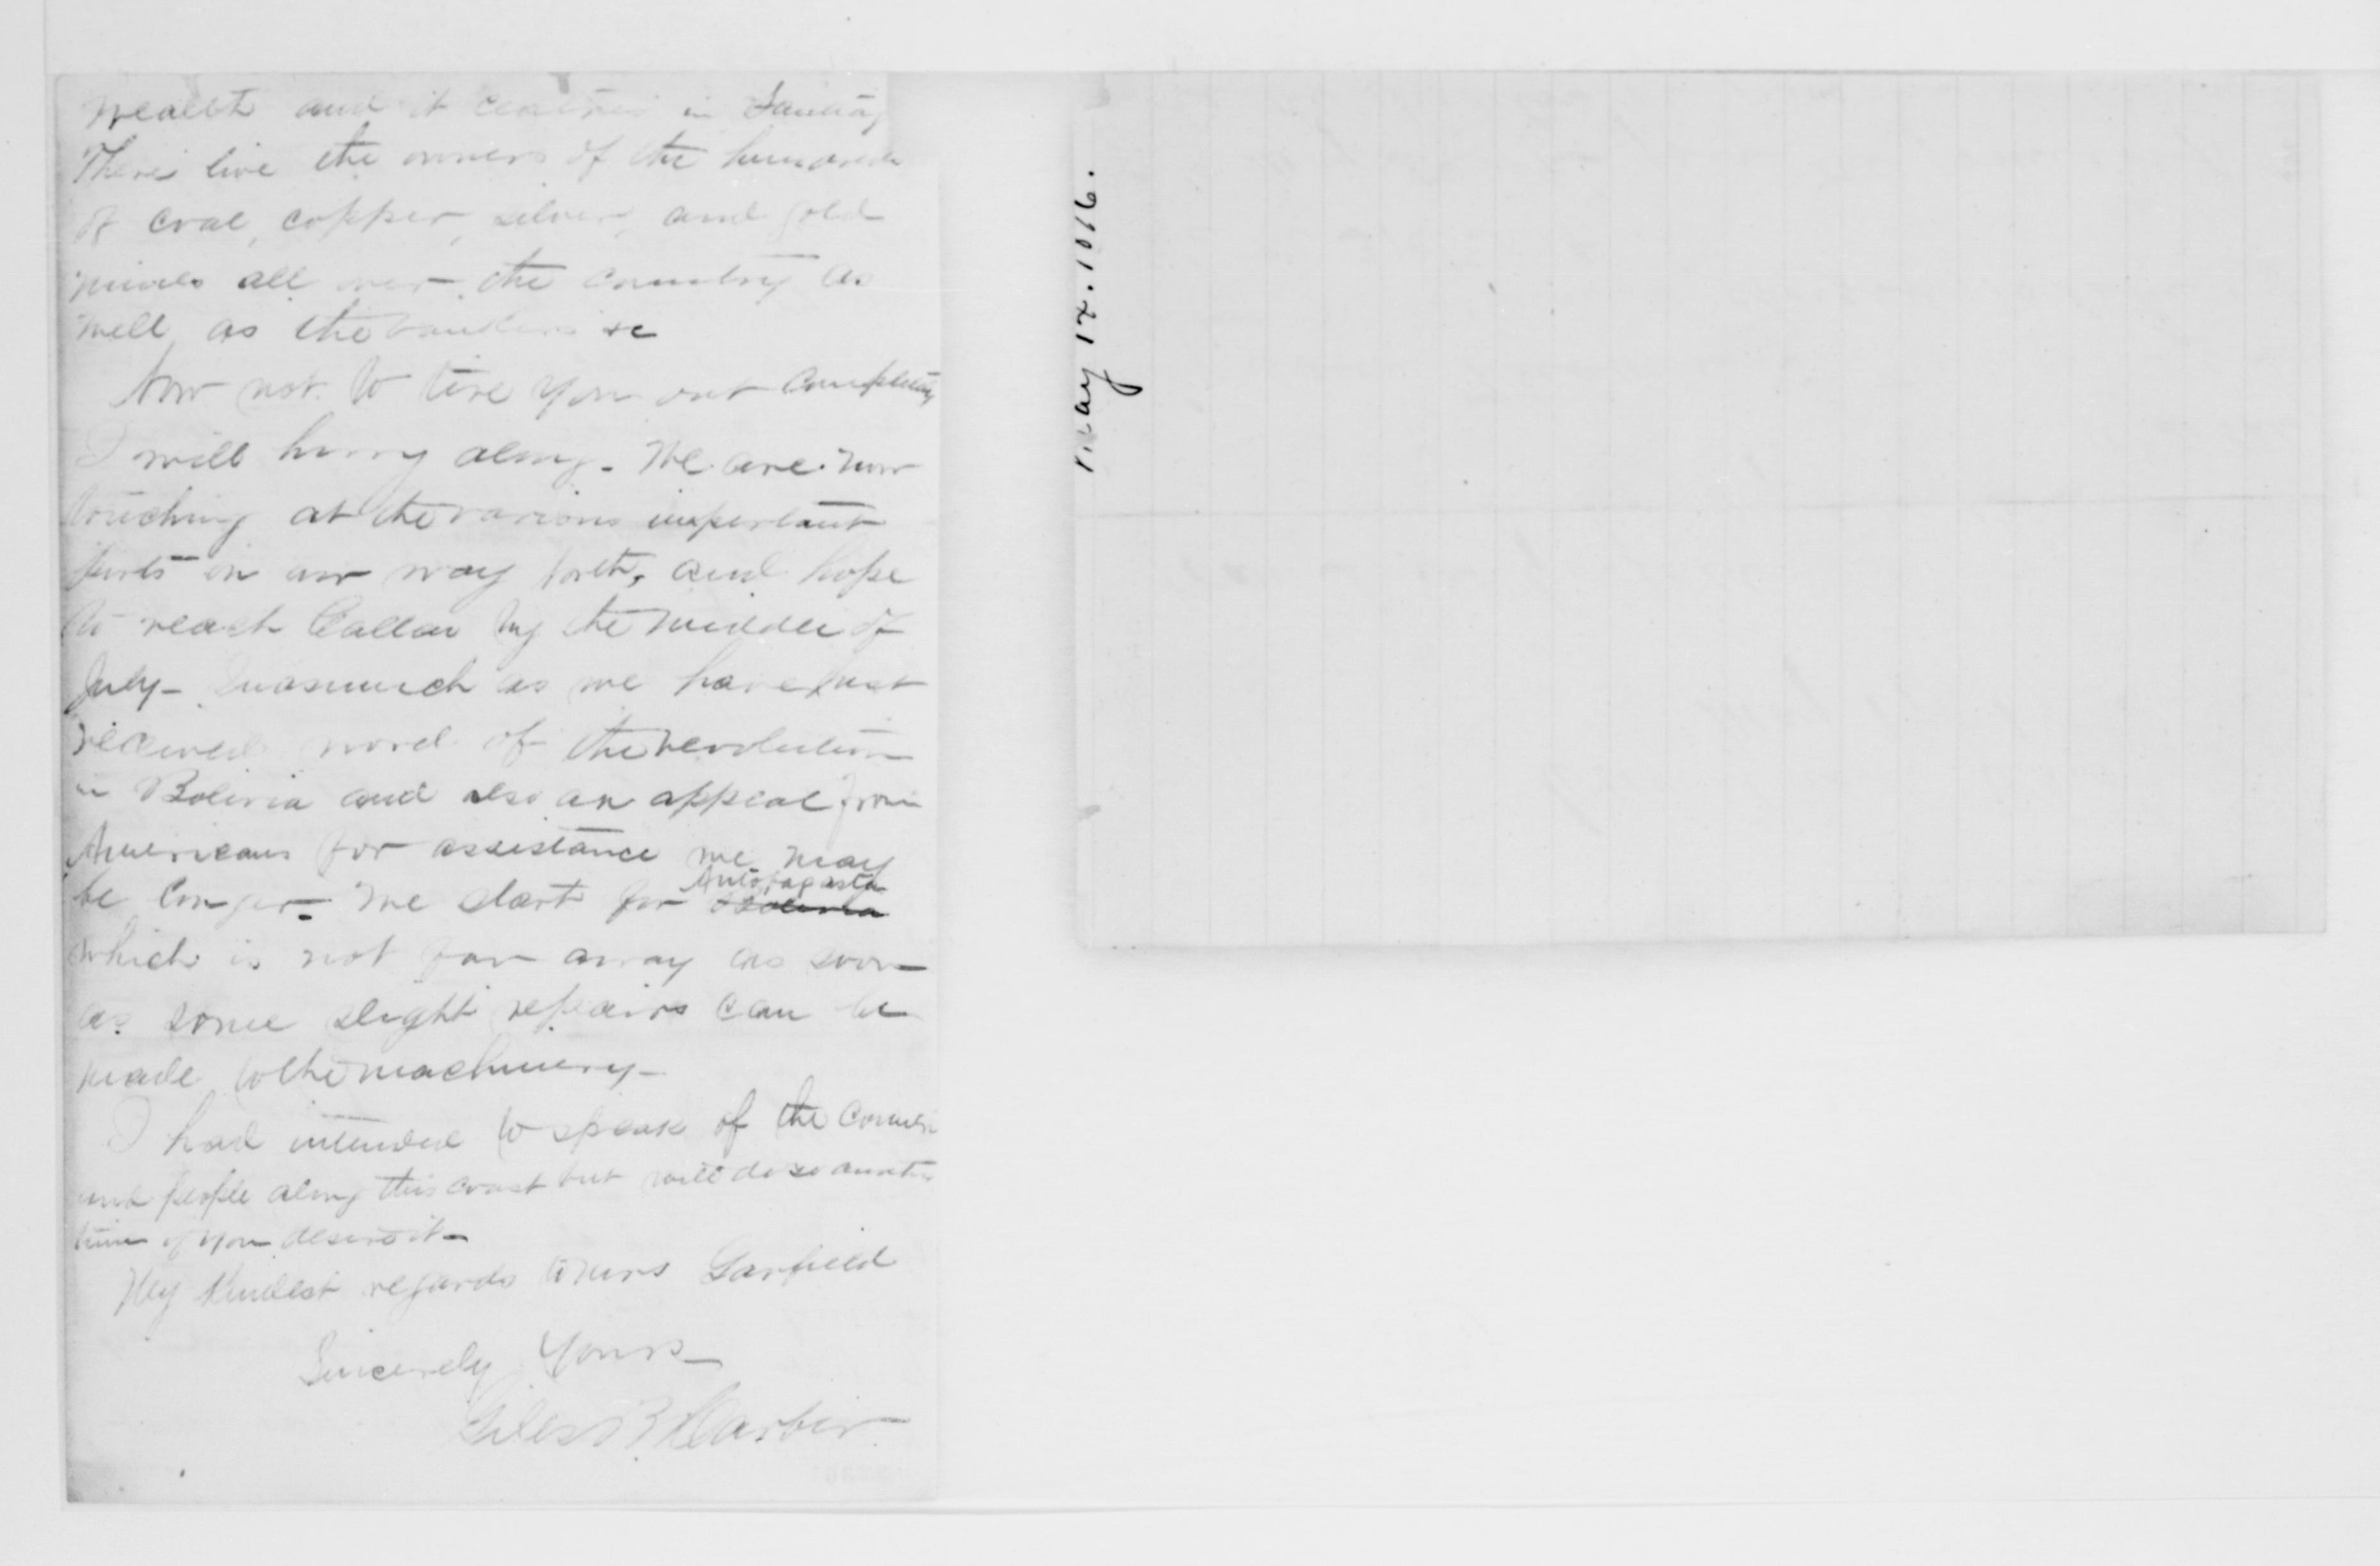 wealth and it centres in Santiag
There live the owners of the hundreds
of coal, copper, silver, and gold
mines all over the country as
well as the bankers &c
Now not to tire you out completely
I will hurry along. We are now
touching at the various important
ports on our way north, and hope
to reach Callao by the middle of
July - Inasmuch as we have just
received word of the revolution
in Bolivia and also an appeal from
Americans for assistance we may
be longer. We start for Antofagasta Bolivia
which is not far away as soon
as some slight repairs can be
made to the machinery -
I had intended to speak of the
and people along this coast but will do so another
time if you desire it -
My kindest regards to Mrs Garfield
Sincerely Yours
Giles B Harber
May 17.